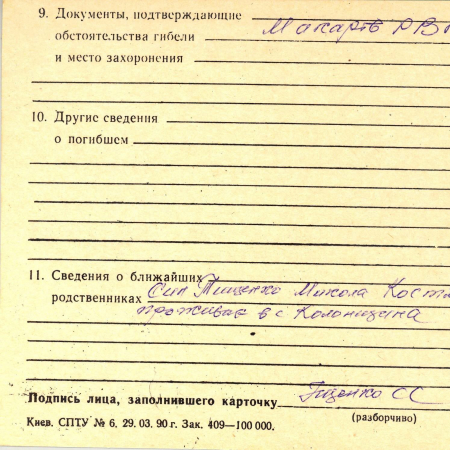 9. Документы, подтверждающие
Макарів РВ
обстоятельства гибели
и место захоронения
10. Другие сведения
о погибшем
11. Сведения о ближайших
родственниках Син Тищенко Микола
проживає в с Колонщина
Подпись лица, заполнившего карточку
СС
(разборчиво)
Киев. СПТУ № 6. 29. 03. 90 г. Зак. 409—100 000.